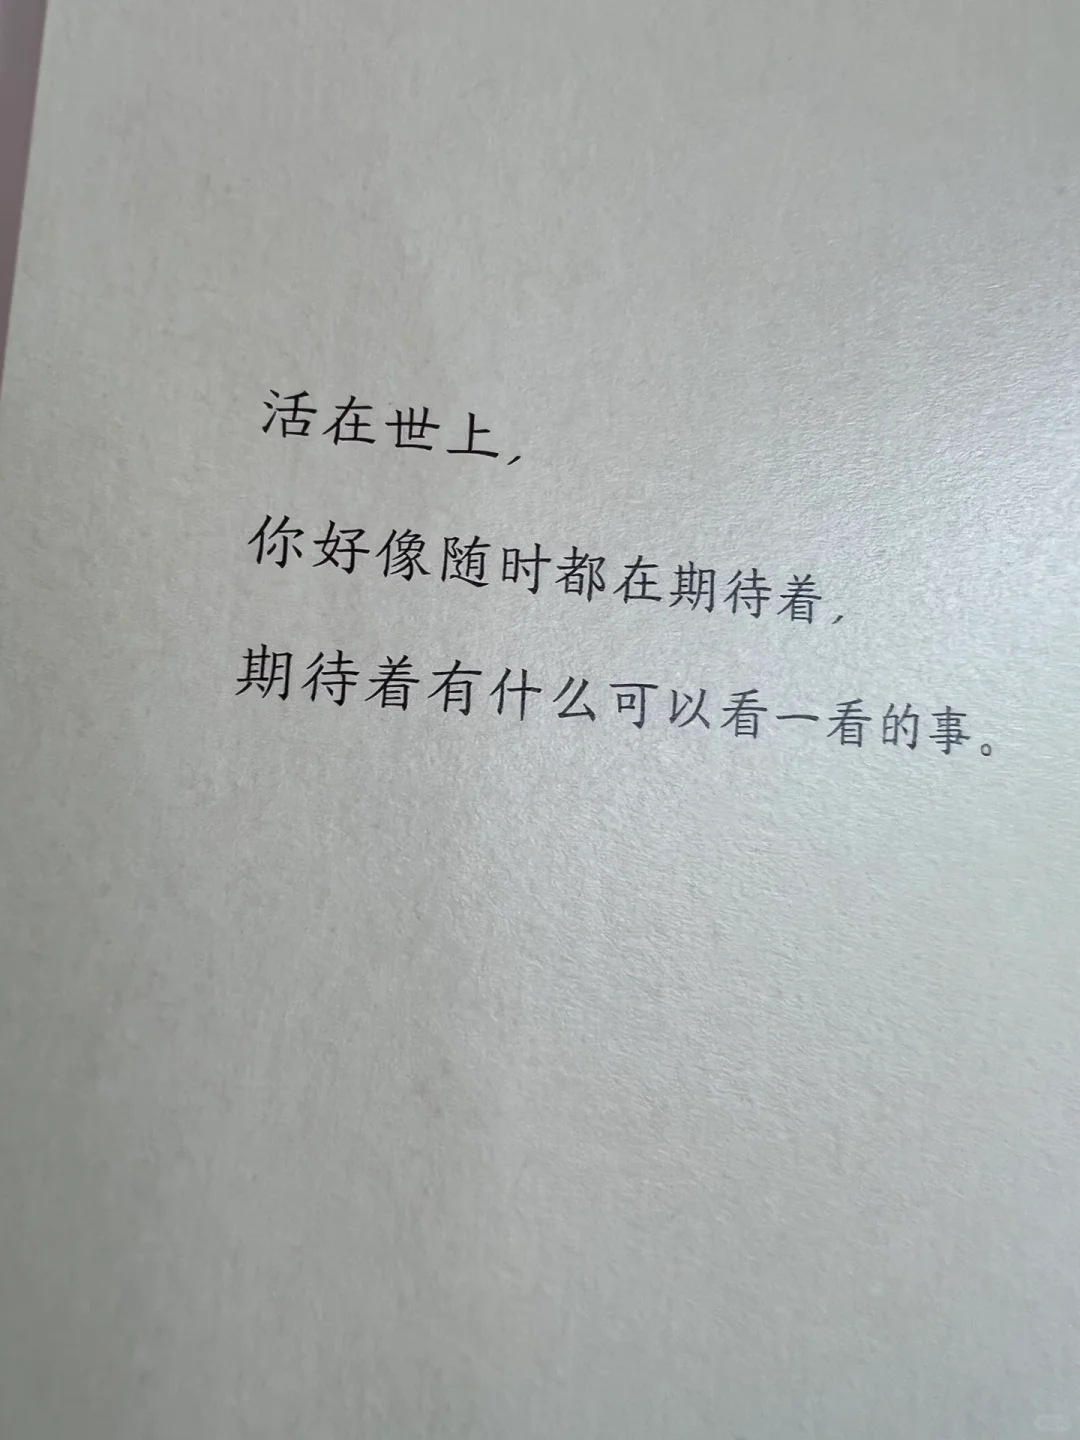 活在世上，
你好像随时都在期待着，
期待着有什么可以看一看的事。